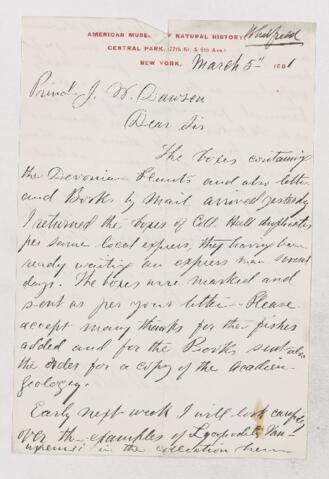 Whitfield
AMERICAN MUSEUM OF NATURAL HISTORY,
CENTRAL PARK, (77th St. & 8th Ave.)
NEW YORK, March 5th 1881
J. W. Dawson
Dear Sir
The boxes containing
the Devonian Plants and also letter
and Books by Mail arrived yesterday
I returned the boxes of Coll. Hall duplicates
per same local express, they having been
ready waiting an express man several
days. The boxes were marked and
sent as per your letter - Please
accept many thanks for the fishes
added and for the Books sent also
the order for a copy of the Acadian
Geology.
Early next week I will look carefully
over the examples of Lycopodites Van-
uxemi in the collection